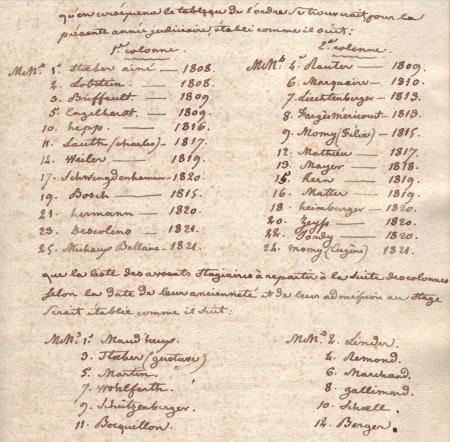 qu'en conséquence le tableau de l'ordre se trouverait pour la
présente année judiciaire, établi comme il suit:
1re colonne.
Me No 1. Stoeber ainé — 1808.
2. Lobstein — 1808.
3. Briffault — 1809.
5. Engelhardt — 1809.
10. hepp — 1816.
11. Lauth (Charles) — 1817.
14. Weiler — 1819.
17. Schwingdenhammer — 1820.
19. Bosch — 1815.
21. hermann — 1820.
23. Descolino — 1821.
25. Michaux Bellaire — 1821.
2e colonne.
Me No 4. Rauter — 1809.
6. Marquaire — 1810.
7. Liechtenberger — 1813.
8. Fargès méricourt — 1813.
9. Momy (Félix) — 1815.
12. Mathieu — 1817.
13. Mayer — 1818.
15. Kern — 1819.
16. Matter — 1819.
18. heimburger — 1820.
20. Zeyss — 1820.
22. — 1820.
24. momy (Eugène) 1821.
que la liste des avocats stagiaires à repartir à la suite des colonnes
selon la date de leur ancienneté et de leur admission au stage
serait établie comme il suit:
Me No 1. Maud'heux.
3. Stoeber (gustave)
5. Martin.
7. Wohlfarth.
9. Schützenberger.
11. Bocquillon.
Me No 2. Linder.
4. Remond.
6. Marchand.
8. gallimard.
10. Schoell.
12. Berger.